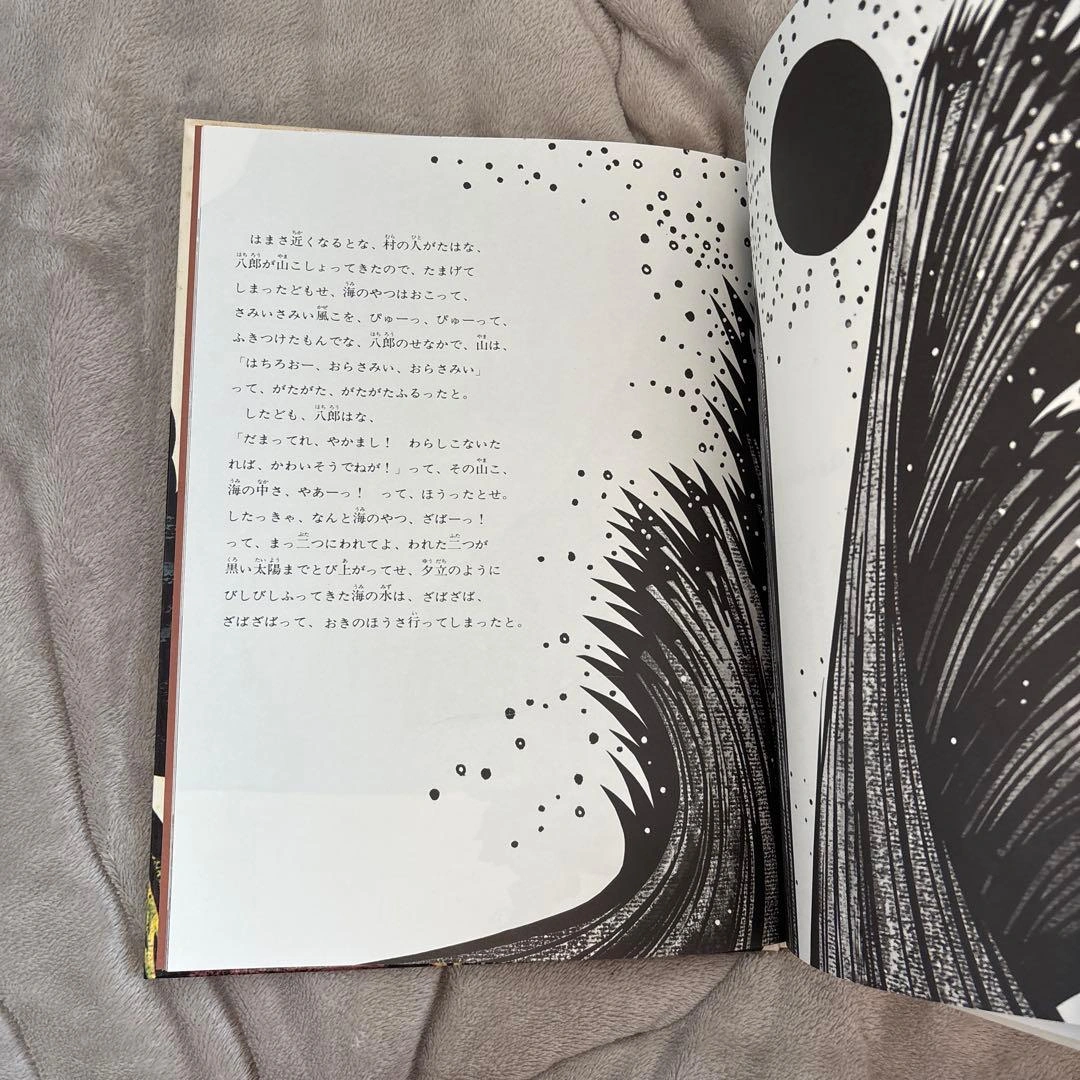 はまさ近くなるとな、村の人がたはな、
八郎が山こしょってきたので、たまげて
しまったどもせ、海のやつはおこって、
さみいさみい風こを、ぴゅーっ、ぴゅーって、
ふきつけたもんでな、八郎のせなかで、山は、
「はちろおー、おらさみい、おらさみい」
って、がたがた、がたがたふるったと。
したども、八郎はな、
「だまってれ、やかまし！　わらしこないた
れば、かわいそうでねが！」って、その山こ、
海の中さ、やあーっ！　って、ほうったとせ。
したっきゃ、なんと海のやつ、ざばーっ！
って、まっ二つにわれてよ、われた二つが
黒い太陽までとび上がってせ、夕立のように
びしびしふってきた海の水は、ざばざば、
ざばざばって、おきのほうさ行ってしまったと。